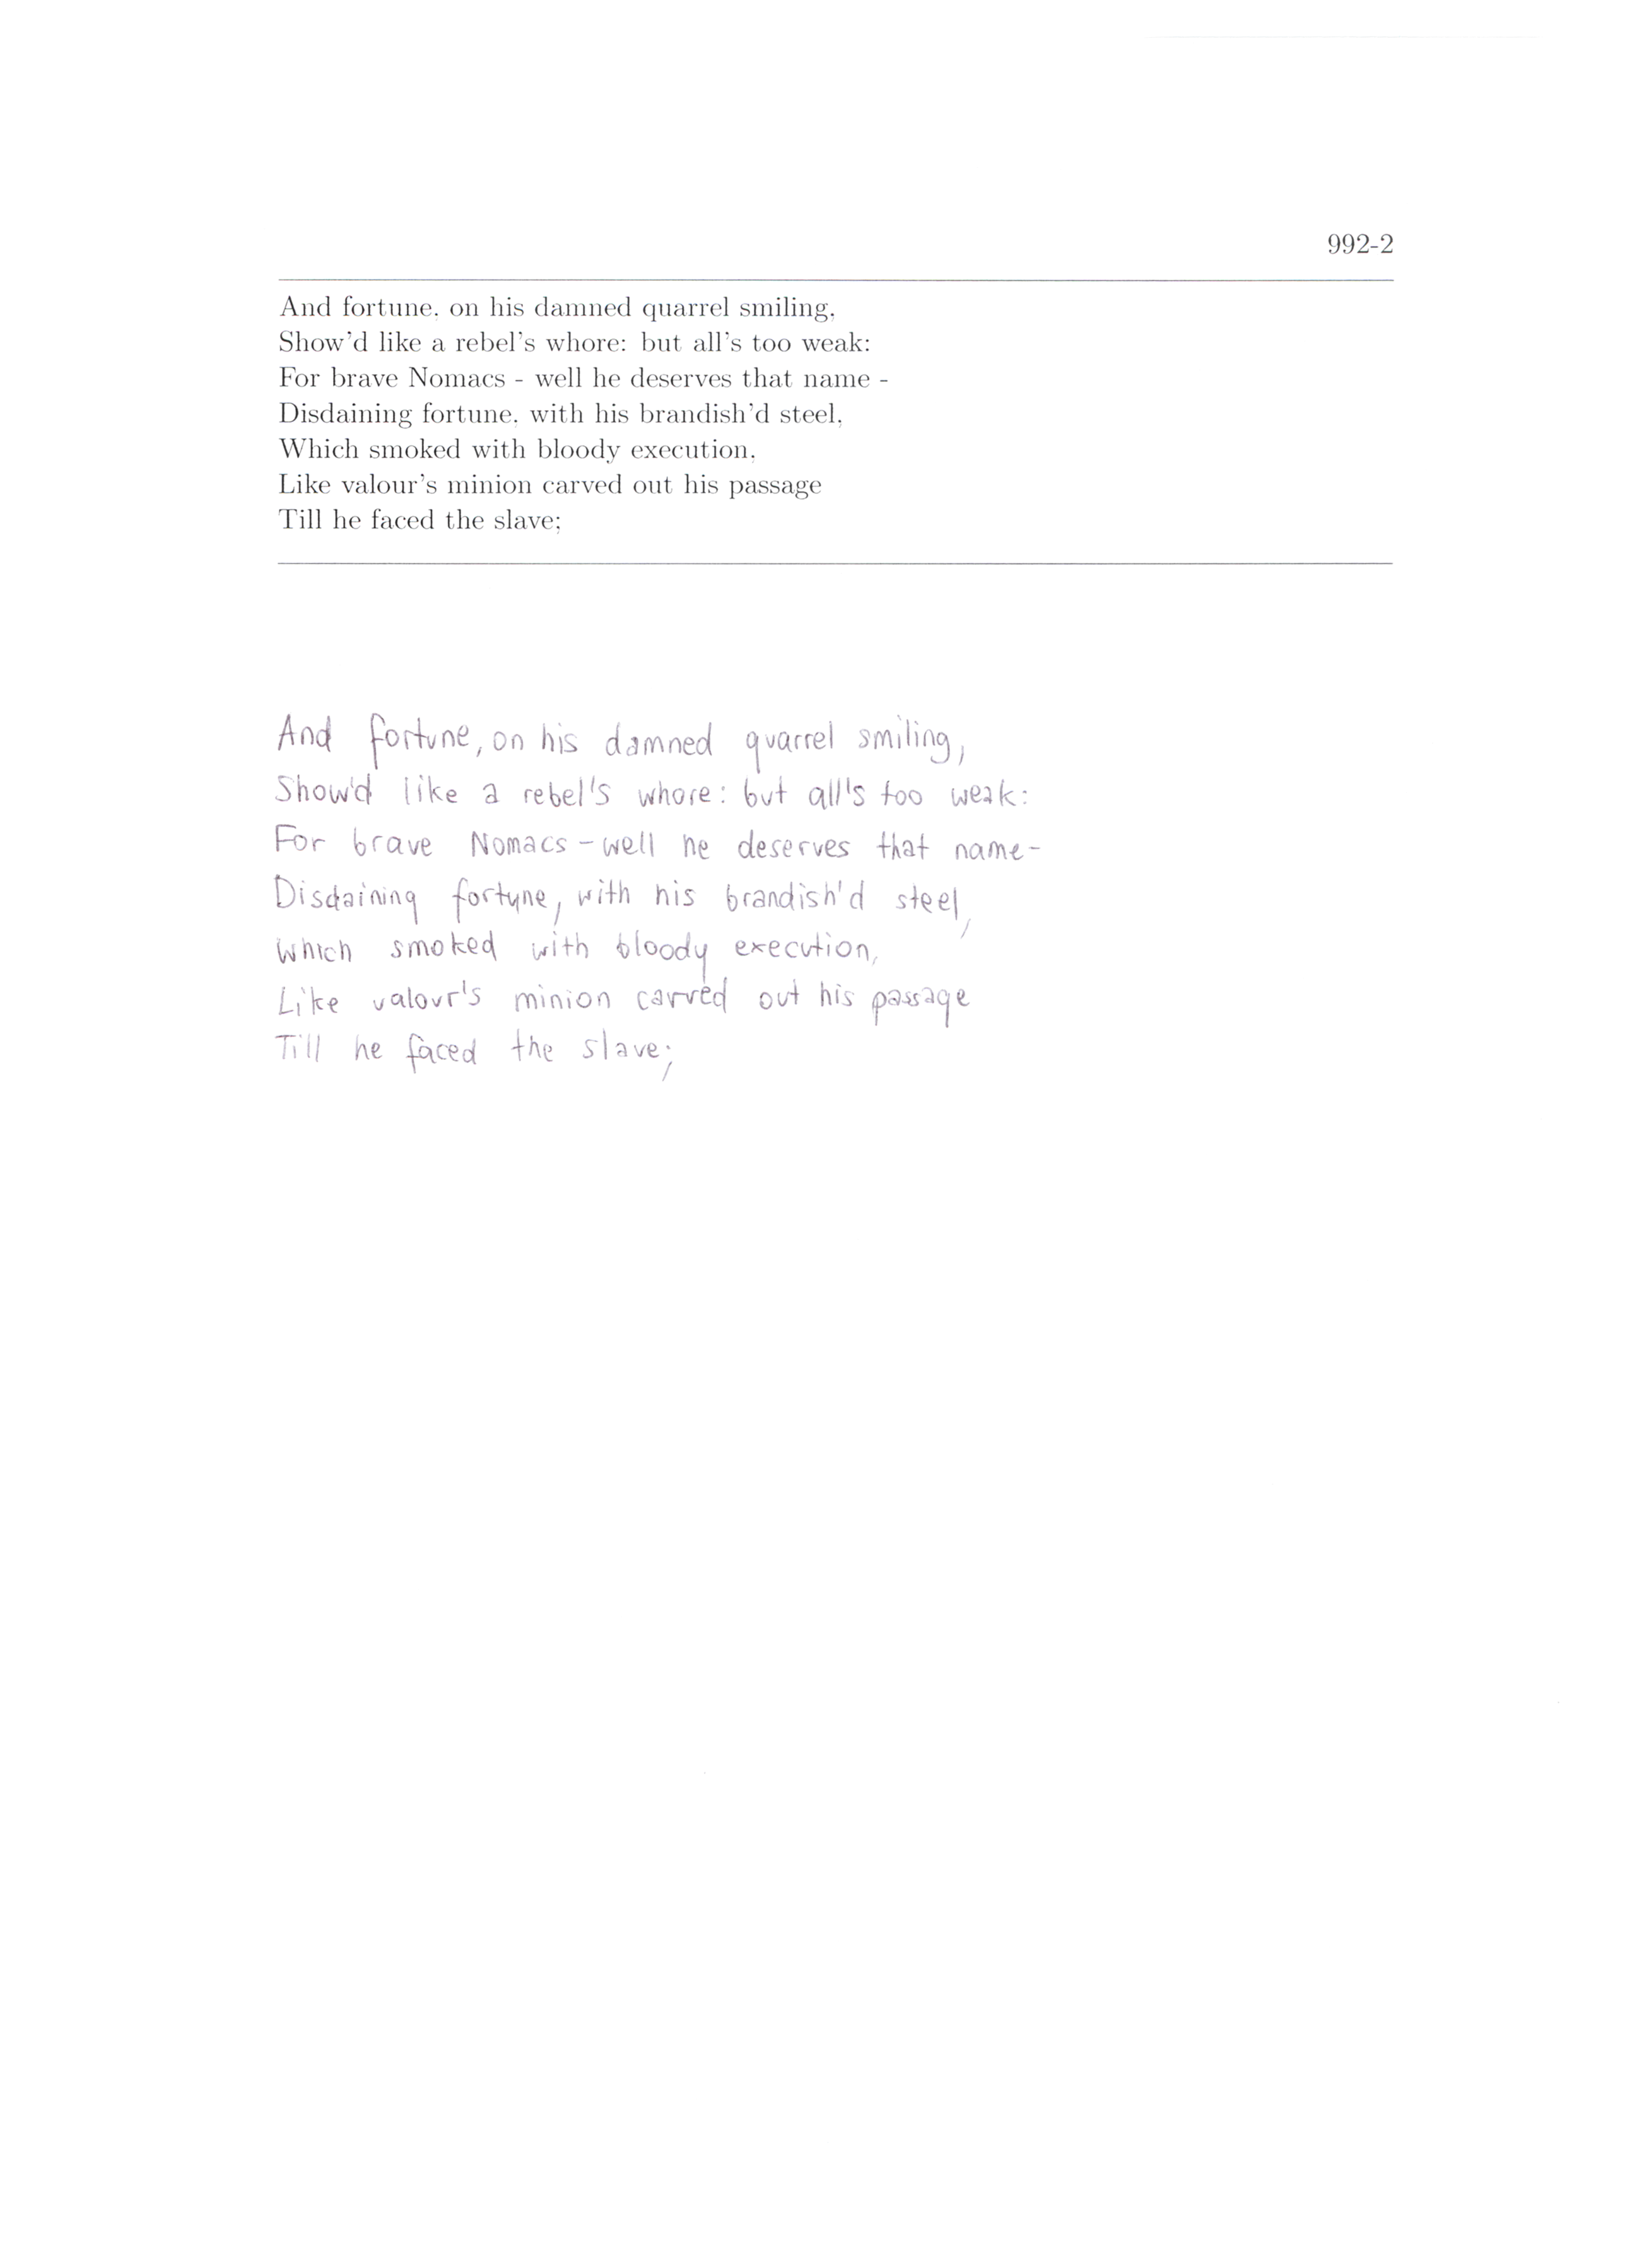 992-2
And fortune, on his damned quarrel smiling,
Show'd like a rebel's whore: but all's too weak:
For brave Nomacs - well he deserves that name -
Disdaining fortune, with his brandish'd steel,
Which smoked with bloody execution,
Like valour's minion carved out his passage
Till he faced the slave;
And fortune, on his damned quarrel smiling,
Show'd like a rebel's whore: but all's too weak:
For brave Nomacs - well he deserves that name -
Disdaining fortune, with his brandish'd steel,
which smoked with bloody execution,
Like valour's minion carved out his passage
Till he faced the slave;